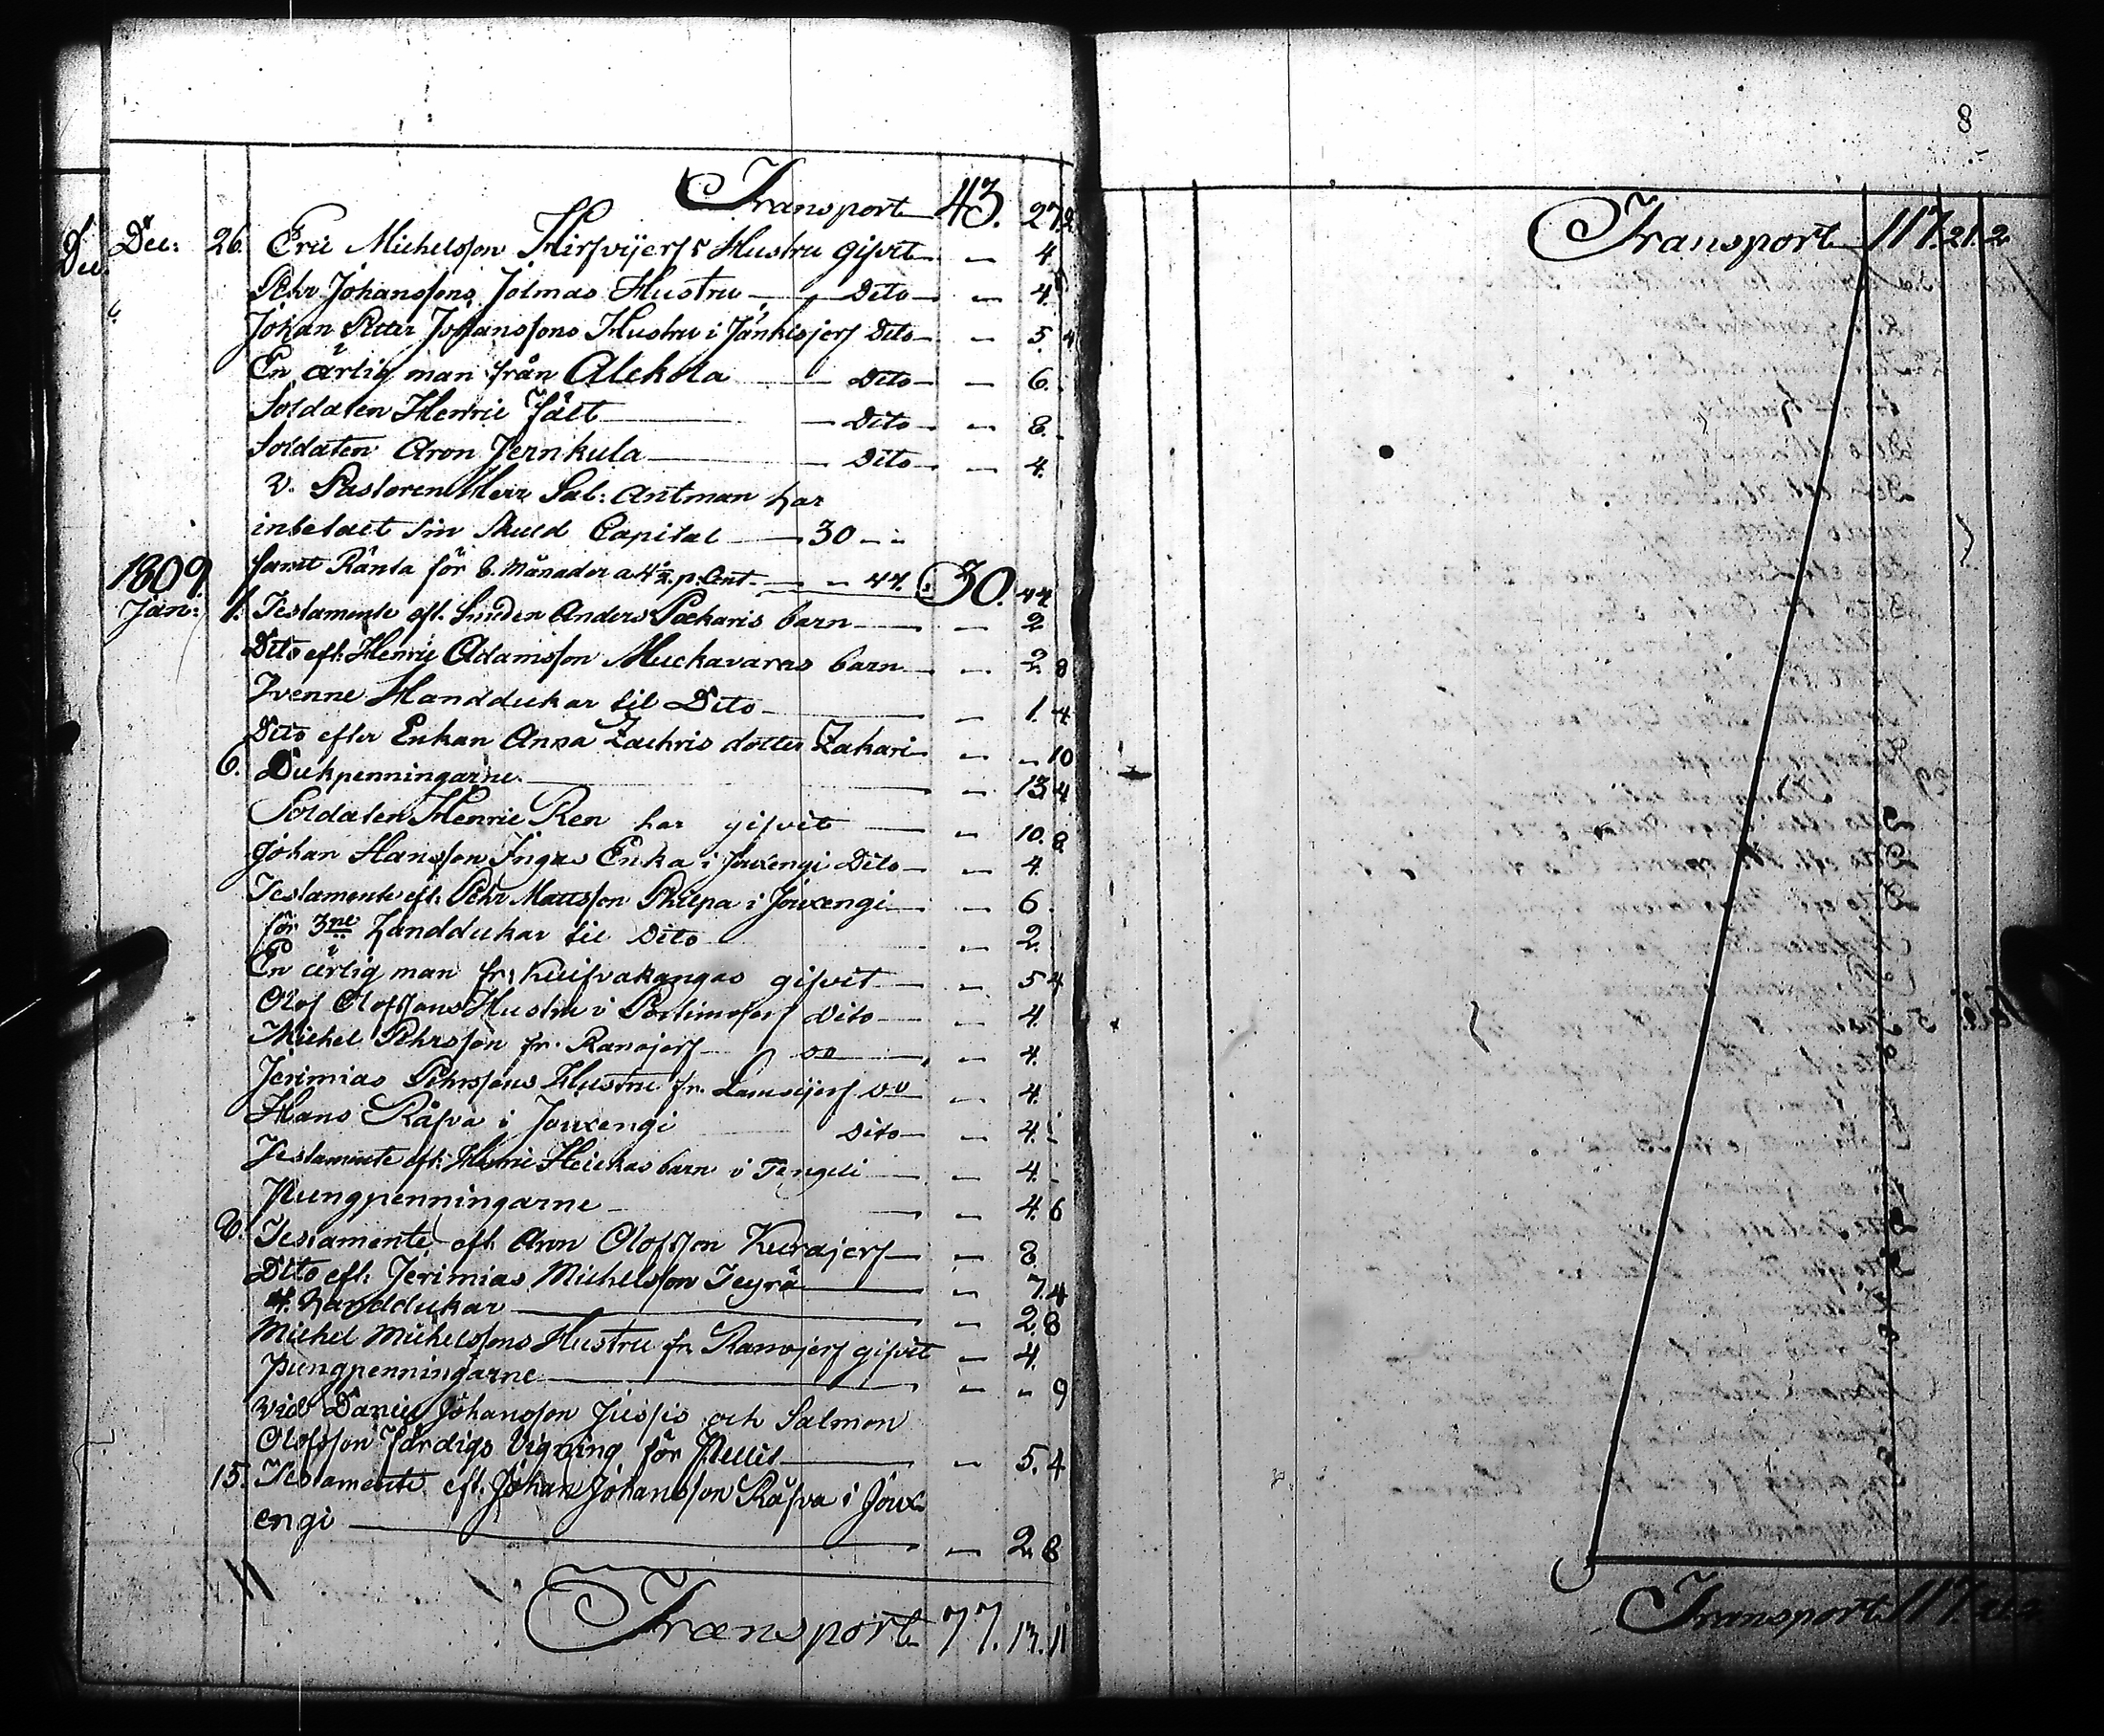 Transport 43. 27. 2
Dec: 26. Eric Michelsson Hirsvijerfs Hustru gifvit — 4
Pehr Johanssons Jolmas Hustru — Dito — 4.
Johan Petter Johanssons Hustru i Jänkisjerf Dito — 5. 4
En ärlig man från Alckola — Dito — 6.
Soldaten Henric Fält — Dito — 8.
Soldaten Aron Jernkula — Dito — 4.
V. Pastoren Herr Sal: Antman har
inbetalt sin Skuld Capital — 30 — "
1809 samt Ränta för 6. Månader a 4½ p. Cent. — " 44. 30. 44
Jan: 1. Testamente eft. Smeden Anders Packaris barn — 2
Dito eft. Henric Adamsson Muckavaras barn — 2. 8
Tvenne Handdukar til Dito — 1. 4
Dito efter Enkan Anna Zachris dotter Zakari — " 10
6. Dukpenningarne — 13. 4
Soldaten Henric Ren har gifvit — 10. 8
Johan Hansson Ingas Enka i Jouxengi Dito — 4.
Testamente eft. Pehr Mattsson Philpa i Jouxengi — 6.
för 3ne handdukar til Dito — 2.
En ärlig man fr: Kuifvakangas gifvit — 5 4
Olof Olofssons Hustru i Portimojerf Dito — 4.
Michel Pehrsson fr. Ranojerf — DO — 4.
Jerimias Pehrssons Hustru fr. Lamsijerf DO — 4.
Hans Råfva i Jouxengi Dito — 4.
Testamente eft. Henric Heickas barn i Tengeli — 4.
Pungpenningarne — 4. 6
8. Testamente eft. Aron Olofsson Kurajerf — 8.
Dito eft: Jerimias Michelsson Teyrä — 7. 4
4. handdukar — 2. 8
Michel Michelssons Hustru fr. Ranojerf gifvit — 4.
pungpenningarne — " 9
vid Daniel Johansson Jussis och Salmon
Olofsson Färdigs Vigning för Pellit — 5. 4
15. Testamente eft. Johan Johansson Råfva i Joux-
engi — 2. 8
Transport 77. 13. 11
8
Transport 117. 21. 2
Transport 117. 21. 2